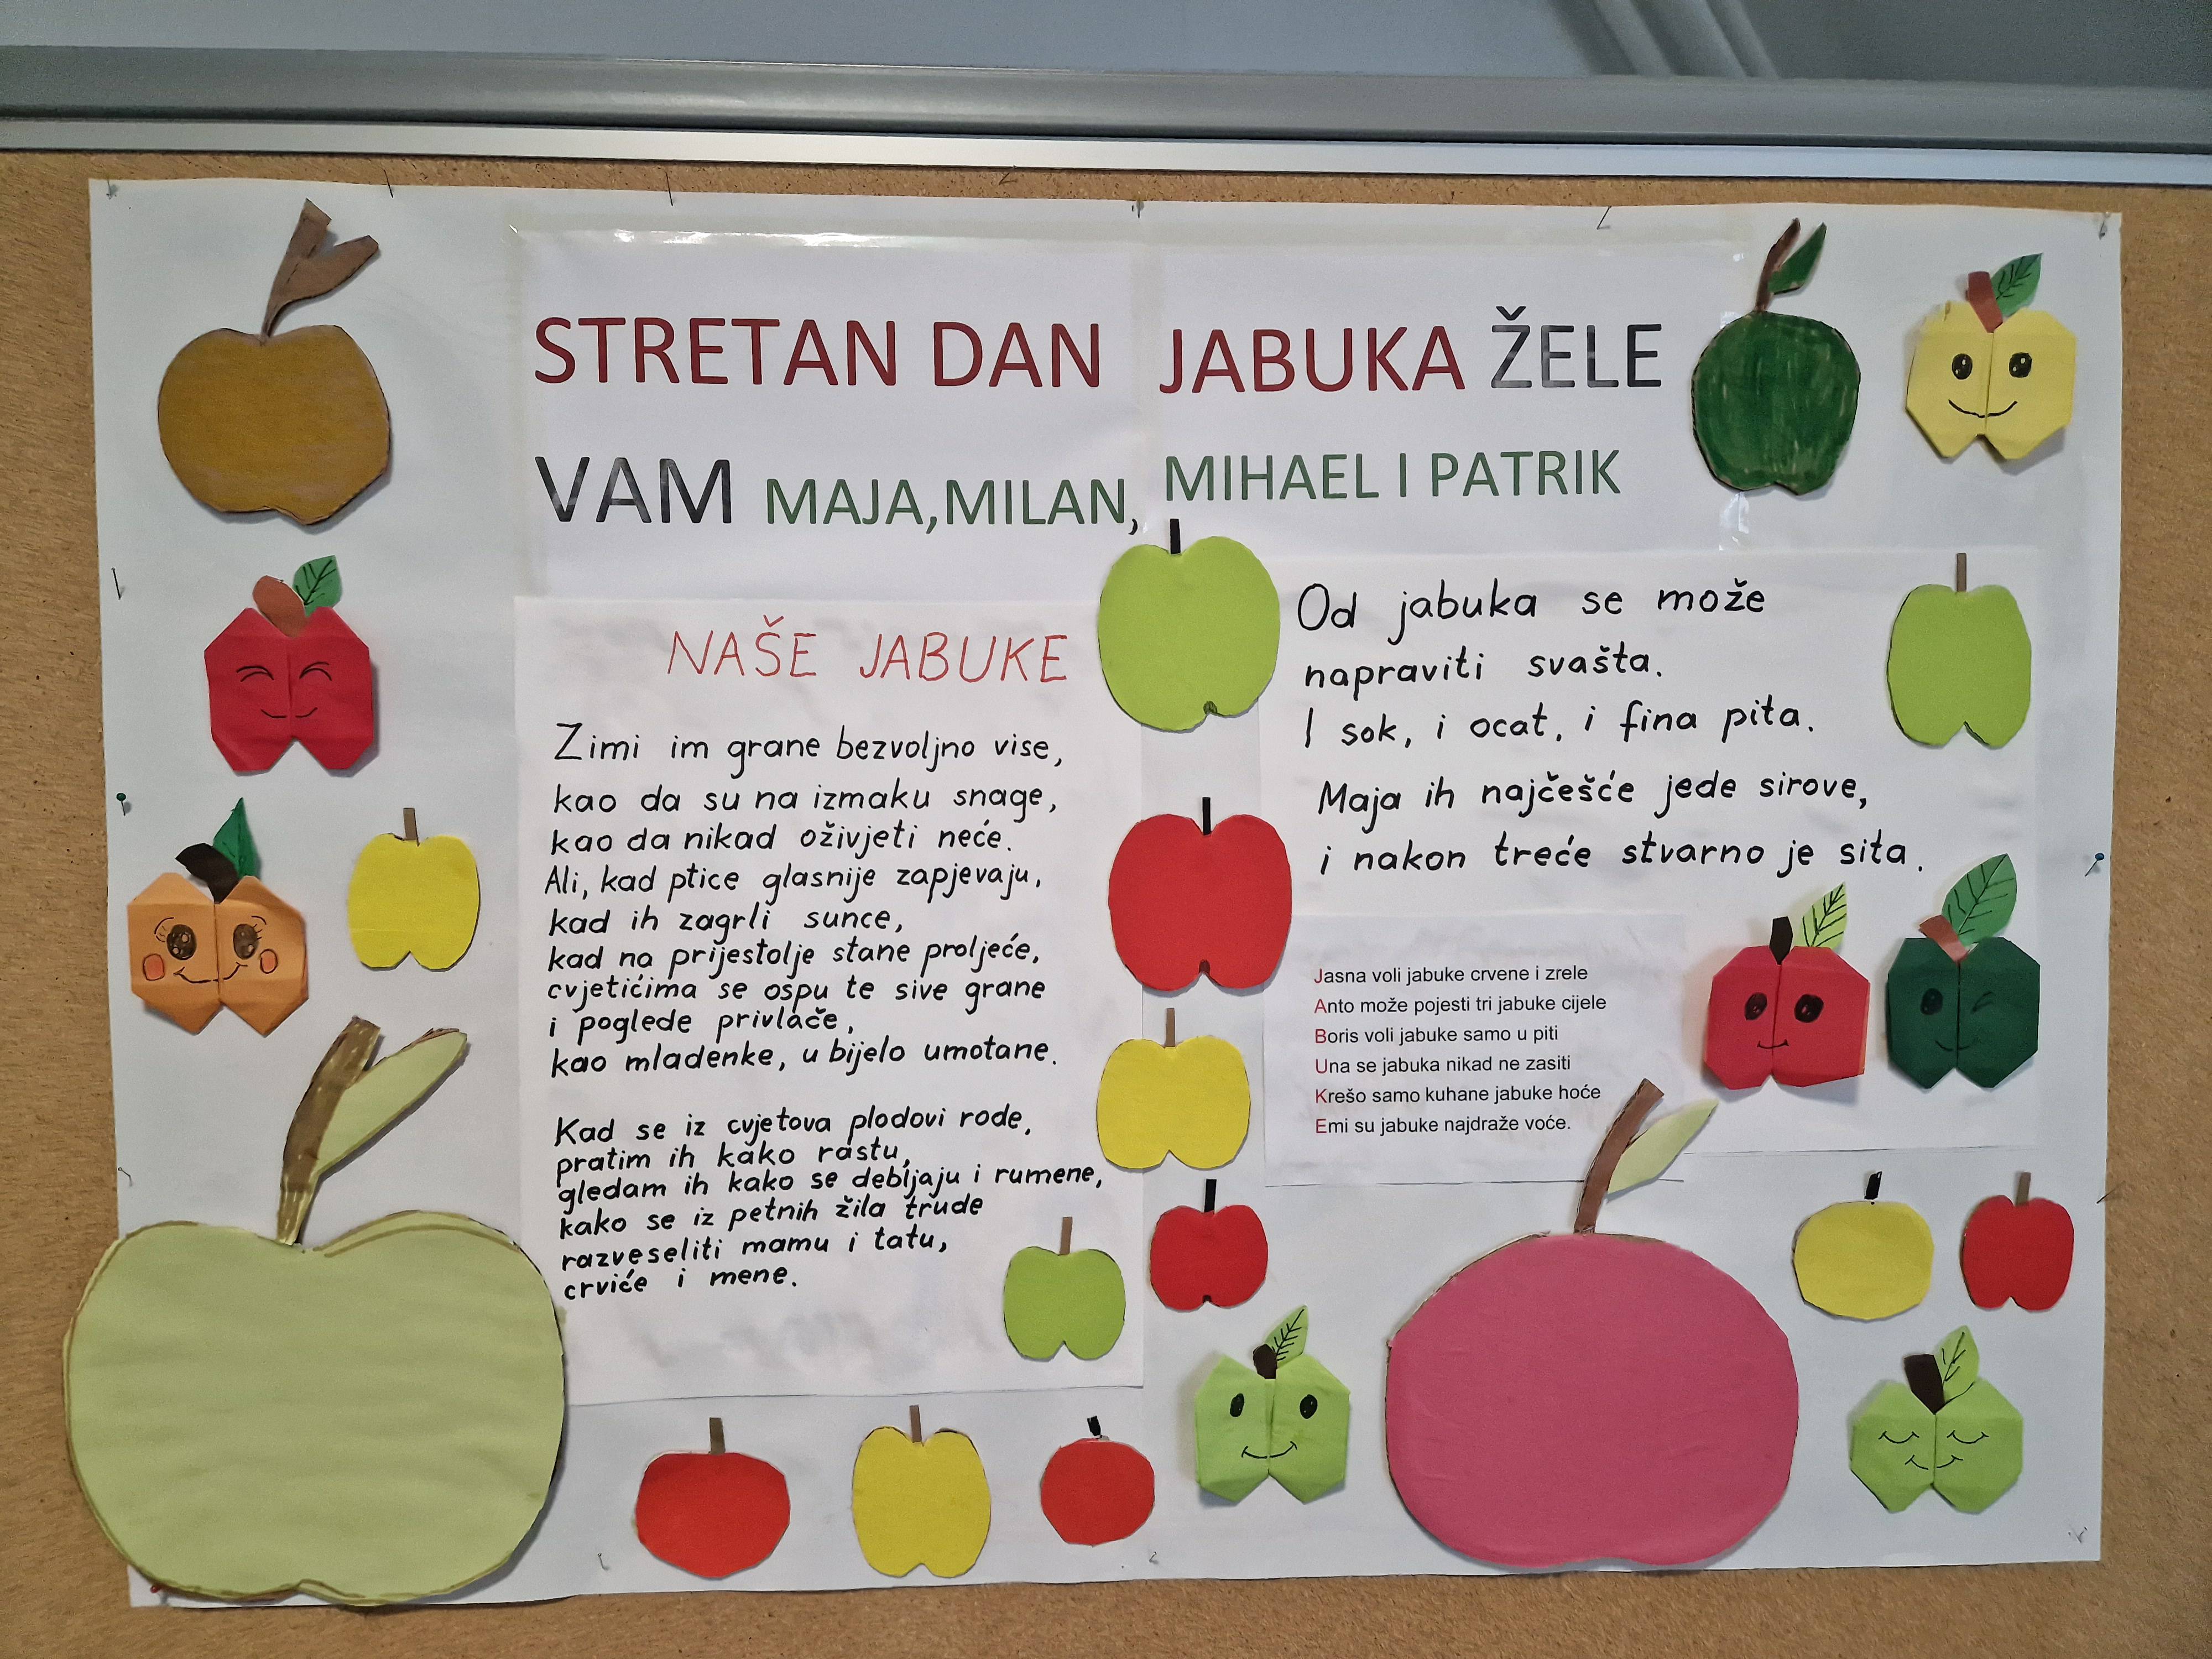 STRETAN DAN JABUKA ŽELE
VAM MAJA, MILAN, MIHAEL I PATRIK
NAŠE JABUKE
Zimi im grane bezvoljno vise,
kao da su na izmaku snage,
kao da nikad oživjeti neće.
Ali, kad ptice glasnije zapjevaju,
kad ih zagrli sunce,
kad na prijestolje stane proljeće,
cvjetićima se ospu te sive grane
i poglede privlače,
kao mladenke, u bijelo umotane.
Kad se iz cvjetova plodovi rode,
pratim ih kako rastu,
gledam ih kako se debljaju i rumene,
kako se iz petnih žila trude
razveseliti mamu i tatu,
crviće i mene.
Od jabuka se može
napraviti svašta.
I sok, i ocat, i fina pita.
Maja ih najčešće jede sirove,
i nakon treće stvarno je sita.
Jasna voli jabuke crvene i zrele
Anto može pojesti tri jabuke cijele
Boris voli jabuke samo u piti
Una se jabuka nikad ne zasiti
Krešo samo kuhane jabuke hoće
Emi su jabuke najdraže voće.